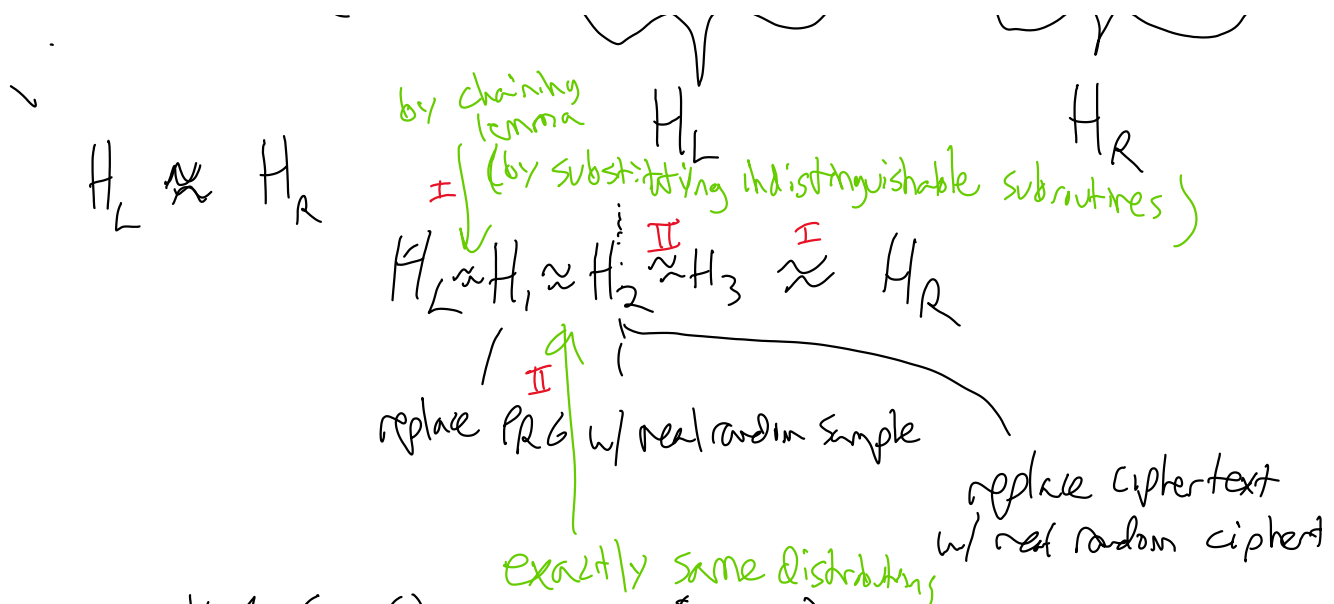 by chaining
lemma
H_L
H_R
H_L ≈ H_R
I
(by substititying indistinguishable subroutines)
II
I
H_L ≈ H_1 ≈ H_2 ≈ H_3 ≈ H_R
II
replace PRG w/ real random sample
replace ciphertext
w/ real random ciphert
exactly same distributions